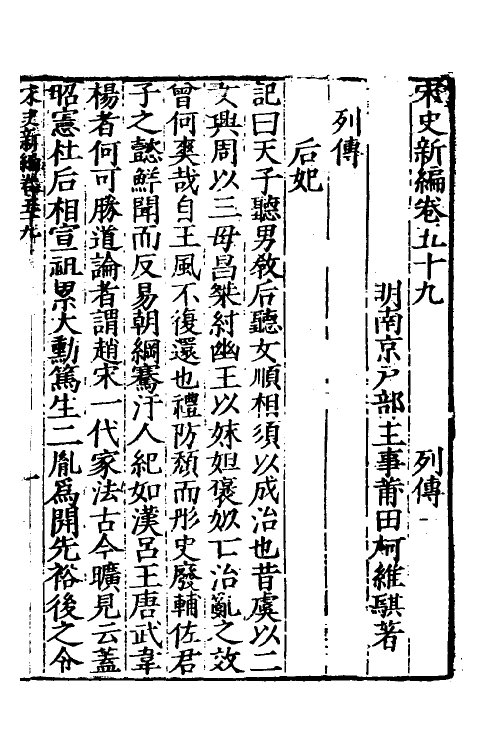 宋史新編卷五十九　列傳一
明南京戶部主事莆田柯維騏著
列傳
后妃
記曰天子聽男敎后聽女順相須以成治也昔虞以二
女興周以三母昌桀紂幽王以妺妲褒姒亡治亂之效
曾何爽哉自王風不復還也禮防頹而彤史廢輔佐君
子之懿鮮聞而反易朝綱騫汙人紀如漢呂王唐武韋
楊者何可勝道論者謂趙宋一代家法古今曠見云蓋
昭憲杜后相宣祖累大勳篤生二胤爲開先裕後之令
宋史新編卷五十九
一